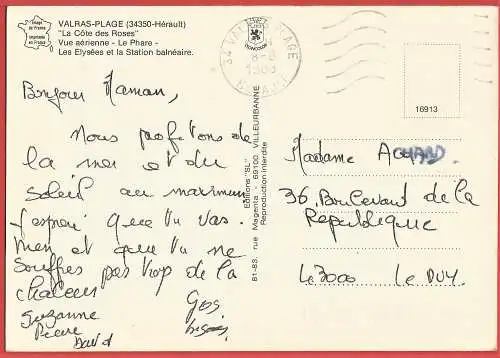 VALRAS-PLAGE (34350-Hérault)
"La Côte des Roses"
Vue aérienne - Le Phare -
Les Elysées et la Station balnéaire.
Image de France
Imprimée en France
34 VALRAS PLAGE
HERAULT
16913
Bonjour Maman,
Nous profitons de
la mer et du
soleil au maximum
J'espère que tu vas
bien et que tu ne
souffres pas trop de la
chaleur
Gros
bisous
Suzanne
Pierre
David
Editions "SL"
81-83, rue Magenta - 69100 VILLEURBANNE
Reproduction interdite
Madame ACHARD
36, Boulevard de la
République
43000 Le Puy